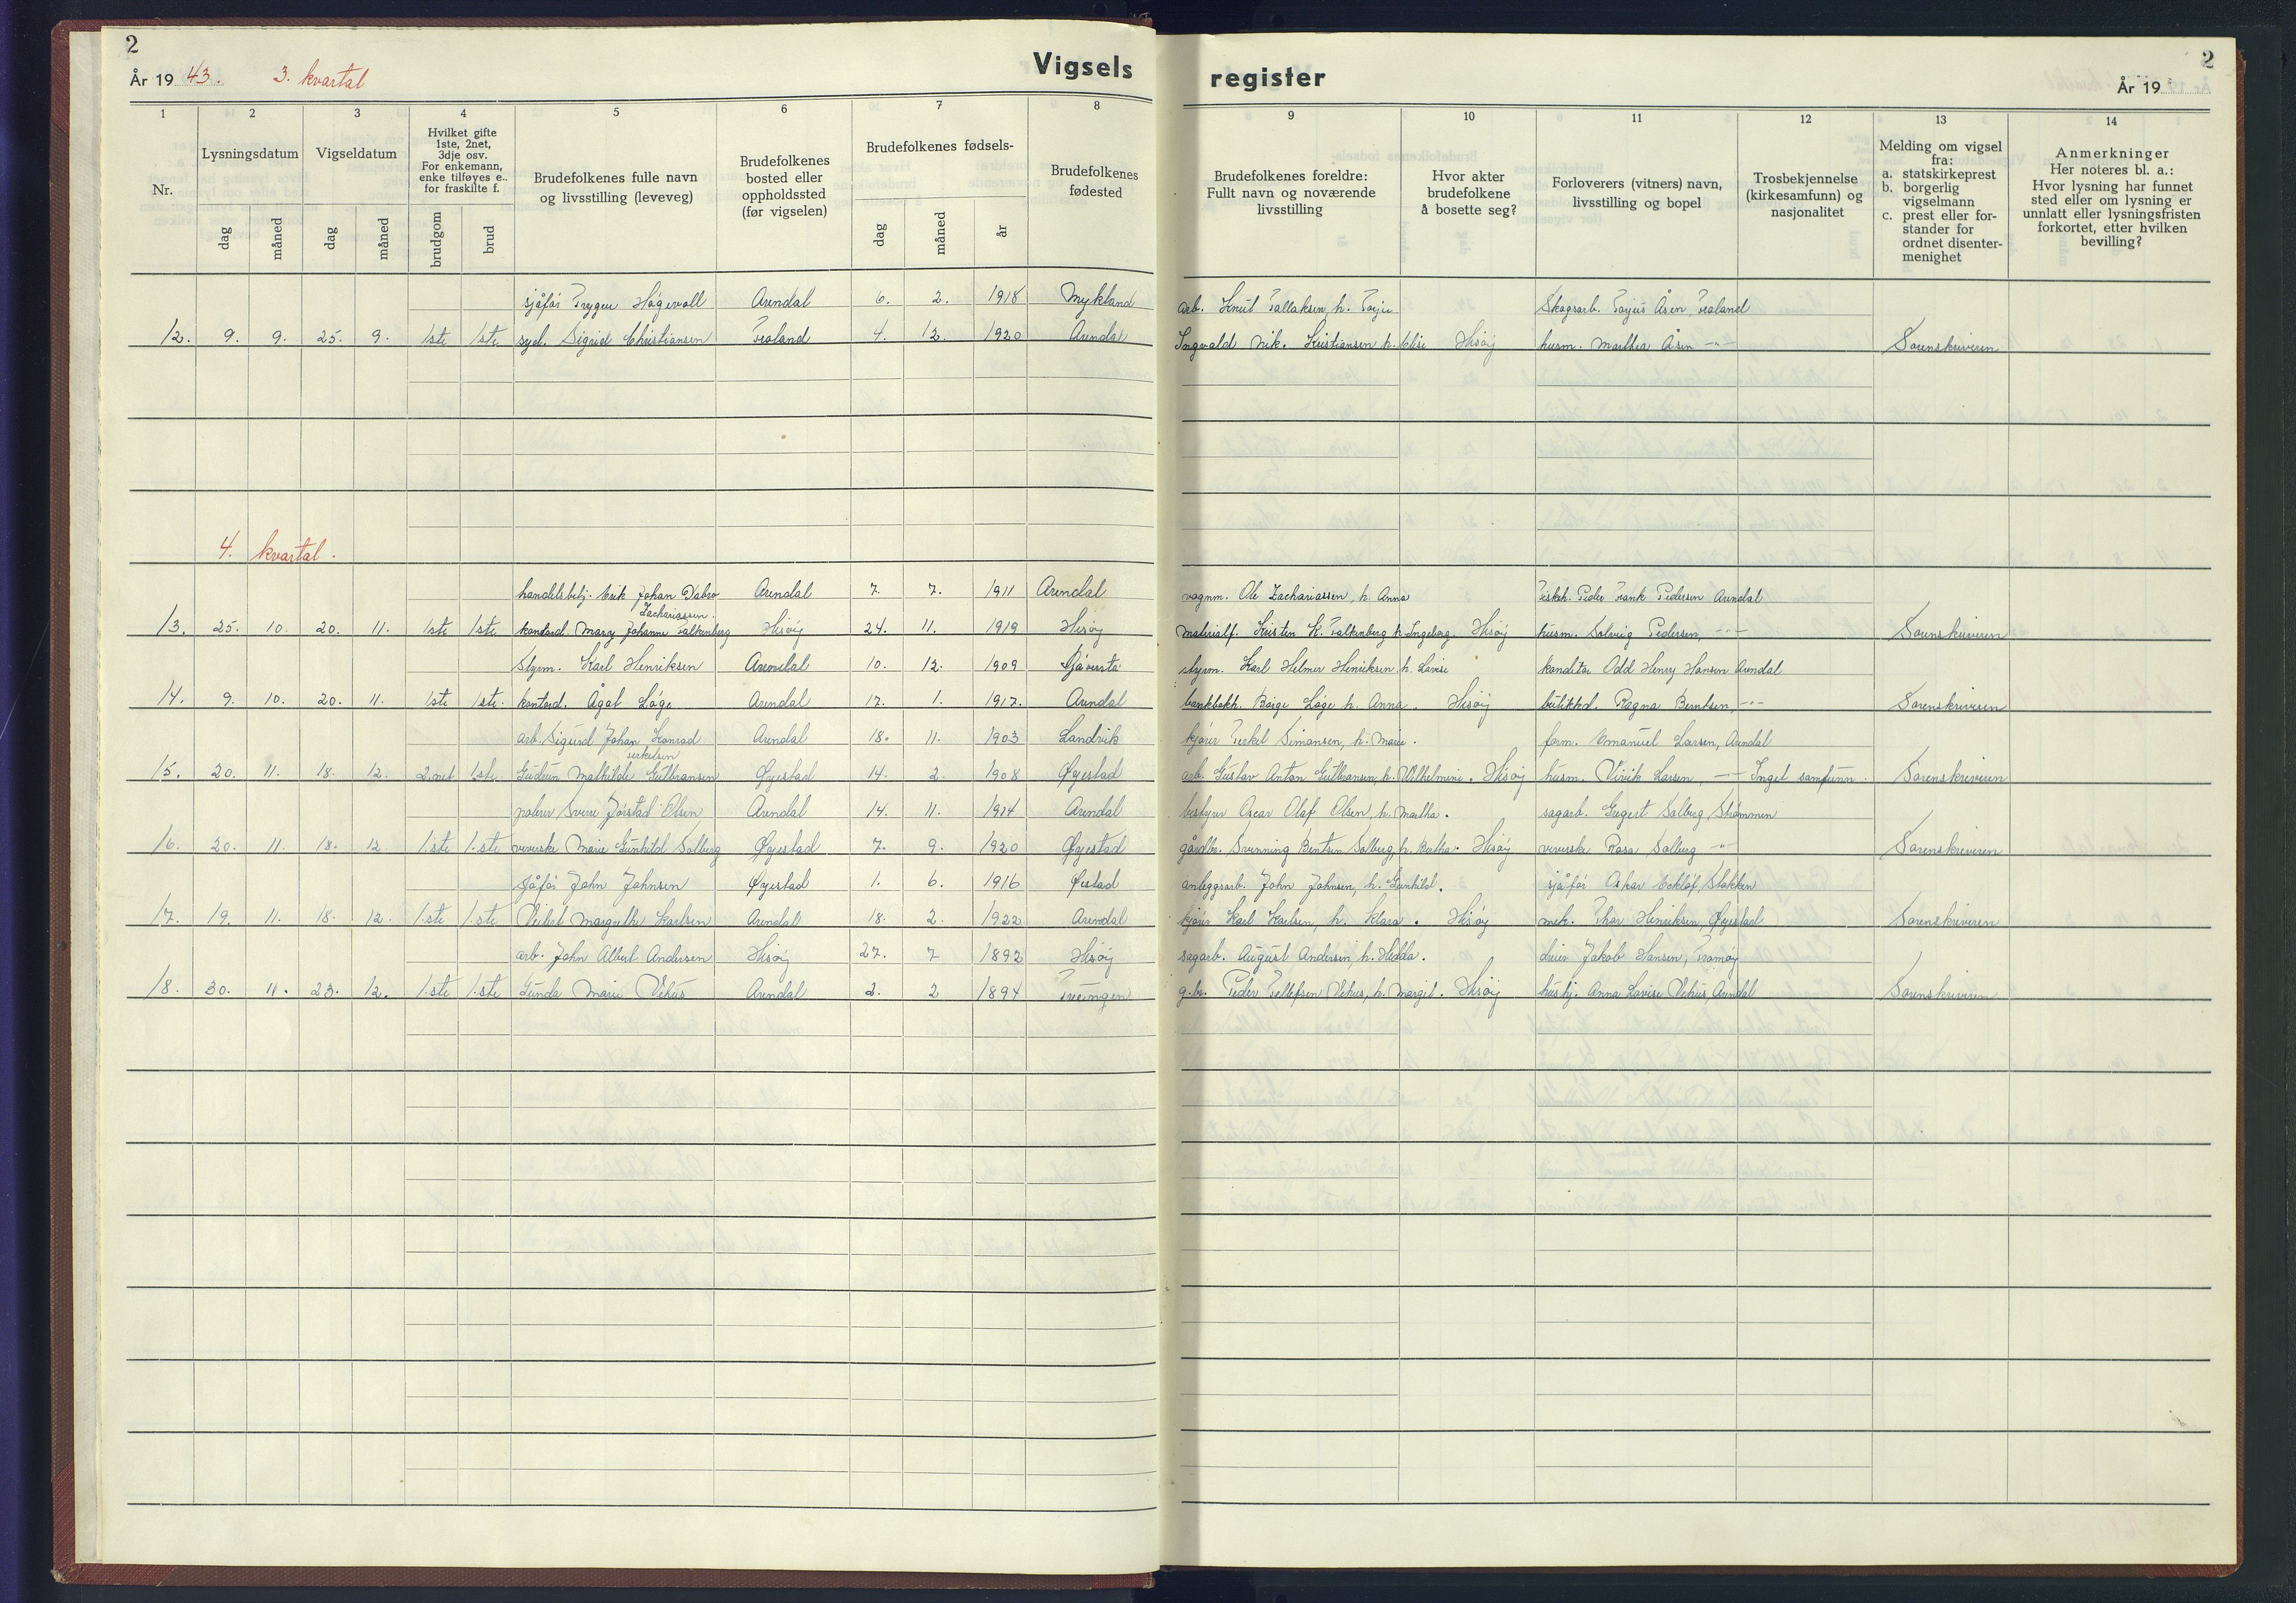 2
År 19 43. 3. kvartal
Vigsels
register
2
År 19
1 2 3 4 5 6 7 8
9 10 11 12 13 14
Nr.
Lysningsdatum
dag
måned
Vigseldatum
dag
måned
Hvilket gifte
1ste, 2net,
3dje osv.
For enkemann,
enke tilføyes e..
for fraskilte f.
brudgom
brud
Brudefolkenes fulle navn
og livsstilling (leveveg)
Brudefolkenes
bosted eller
oppholdssted
(før vigselen)
Brudefolkenes fødsels-
dag
måned
år
Brudefolkenes
fødested
Brudefolkenes foreldre:
Fullt navn og noværende
livsstilling
Hvor akter
brudefolkene
å bosette seg?
Forloverers (vitners) navn,
livsstilling og bopel
Trosbekjennelse
(kirkesamfunn) og
nasjonalitet
Melding om vigsel
fra:
a. statskirkeprest
b. borgerlig
vigselmann
c. prest eller for-
stander for
ordnet disenter-
menighet
Anmerkninger
Her noteres bl. a.:
Hvor lysning har funnet
sted eller om lysning er
unnlatt eller lysningsfristen
forkortet, etter hvilken
bevilling?
sjåfør Trygve Høgevoll Arendal 6. 2. 1918 Mykland arb. Knut Tallaksen, h. Torju Skogsarb. Torjus Åsen, Froland
12. 9. 9. 25. 9. 1ste 1ste. syd. Sigrid Christiansen Froland 4. 12. 1920 Arendal Ingvald Nik. Kristiansen h. Elise Hisøy husm. Marthea Åsen -"- Sorenskriveren
4. kvartal.
handelsbetj. Erik Johan Dabro Arendal 7. 7. 1911 Arendal vognm. Ole Zachariassen, h. Anna Fiskeh. Peder Frank Pedersen Arendal
Zachariassen.
13. 25. 10. 20. 11. 1ste 1ste. kontord. Mary Johanne Falkenberg Hisøy 24. 11. 1919 Hisøy materialf. Kristen K. Falkenberg h. Ingeborg. Hisøy husm. Solveig Pedersen, -"- Sorenskriveren
Styrm. Karl Henriksen Arendal 10. 12. 1909 styrm. Karl Helmer Henriksen, h. Lovise konditor Odd Henry Hansen Arendal
14. 9. 10. 20. 11. 1ste 1ste. kontord. Ågot Løge Arendal 17. 1. 1917. Arendal bankbokh. Børge Løge h. Anna. Hisøy butikkd. Ragna Berntsen, -"- Sorenskriveren
arb. Sigurd Johan Konrad Arendal 18. 11. 1903 Landvik kjører Terkel Simonsen, h. Marie. form. Emanuel Larsen, Arendal
Terkelsen
15. 20. 11. 18. 12. 2.net 1.ste. Gudrun Mathilde Gulbransen Øyestad 14. 2 1908 Øyestad arb. Gustav Anton Gulbransen, h. Wilhelmine. Hisøy husm. Virik Larsen, -"- Inget samfunn. Sorenskriveren
polerer Sverre Jørstad Olsen Arendal 14. 11. 1914 Arendal bestyrer Oscar Olaf Olsen, h. Martha. sagarb. Gregert Solberg, Strømmen
16. 20. 11. 18. 12 1.ste 1.ste veverske Marie Gunhild Solberg Øyestad 7. 9. 1920 Øyestad gårdbr. Svenning Bentsen Solberg, h. Bertha. Hisøy veverske Rosa Solberg -"- Sorenskriveren
Sjåfør John Johnsen Øyestad 1. 6. 1916 Øestad anleggsarb. John Johnsen, h. Gunhild. sjåfør Oskar Eckløf, Stokken
17. 19. 11. 18. 12. 1.ste 1.ste Margrethe Karlsen Arendal 18. 2. 1922 Arendal kjører Karl Karlsen, h. Klara. Hisøy mek. Thor Henriksen, Øyestad Sorenskriveren
arb. John Albert Andersen Hisøy 27. 7 1892 Hisøy sagarb. August Andersen, h. Hedda. dreier Jakob Hansen, Tromøy
18. 30. 11. 23. 12. 1.ste 1.ste Gunda Marie Vehus Arendal 2. 2 1894 Treungen g.br. Peder Tellefsen Vehus, h. Margit. Hisøy hushj. Anna Lovise Vehus, Arendal Sorenskriveren